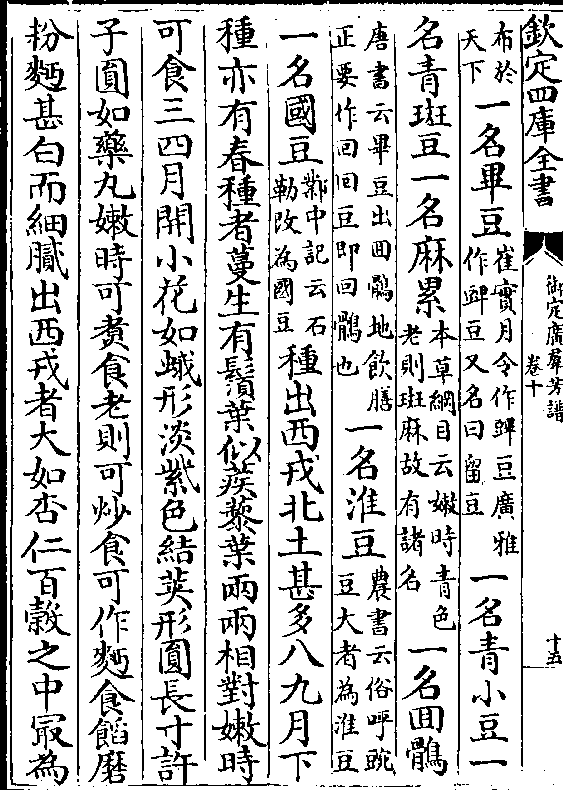 欽定四庫全書
御定廣羣芳譜
卷十
十五
布於天下一名畢豆崔寔月令作䜺豆廣雅作䜺豆又名曰留豆一名青小豆一
名青斑豆一名麻累本草綱目云嫩時青色老則斑麻故有諸名一名回鶻
唐書云畢豆出回鶻地飲膳正要作回回豆即回鶻也一名淮豆農書云俗呼豌豆大者為淮豆
一名國豆鄴中記云石勒改為國豆種出西戎北土甚多八九月下
種亦有春種者蔓生有鬚葉似蒺藜葉兩兩相對嫩時
可食三四月開小花如蛾形淡紫色結莢形圓長寸許
子圓如藥丸嫩時可煑食老則可炒食可作麫食餡磨
粉麫甚白而細膩出西戎者大如杏仁百穀之中最為